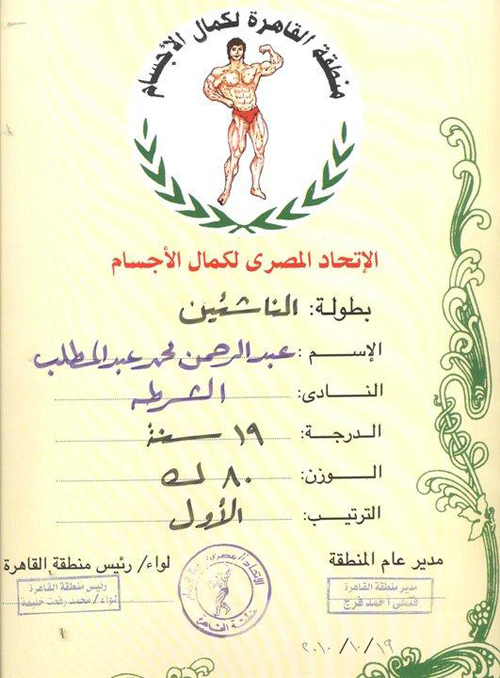 منطقة القاهرة لكمال الأجسام
الإتحاد المصرى لكمال الأجسام
بطولة: الناشئين
الإسم: عبد الرحمن محمد عبد المطلب
النادى: الشرطه
الدرجة: ١٩ سنة
الوزن: ٨٠ ك
الترتيب: الأول
مدير عام المنطقة
لواء/ رئيس منطقة القاهرة
مدير منطقة القاهرة
فتحى أحمد فرج
رئيس منطقة القاهرة
لواء/ محمد رفعت
الاتحاد المصرى
منطقة القاهرة
٢٠١٠/١٠/١٩